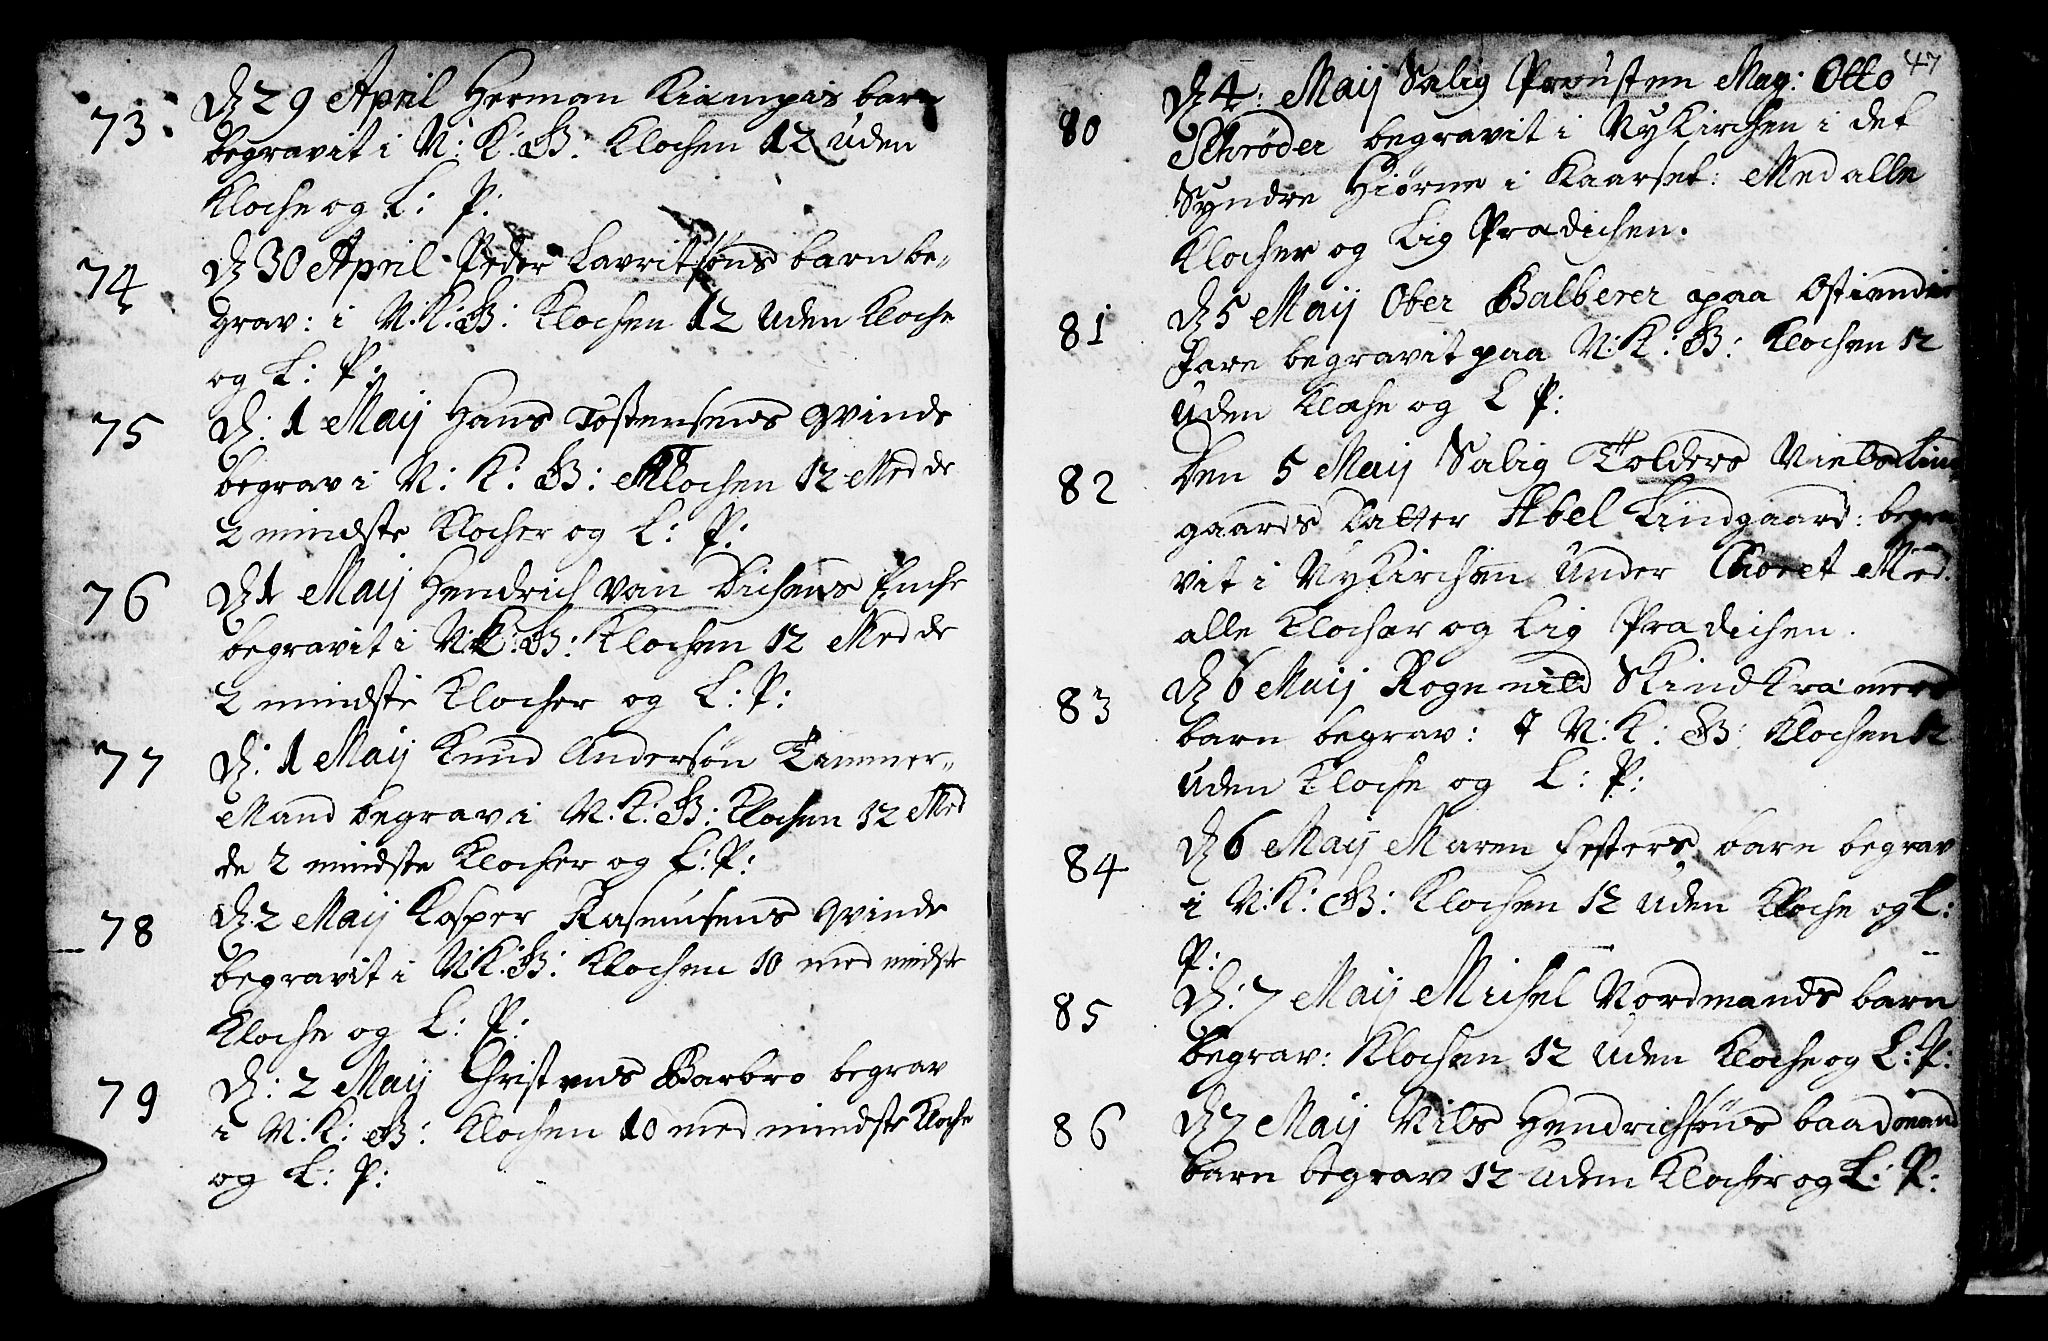 73: D 29 April Herman Kiampis barn
begravit i N: K: B: Klochen 12 uden
Kloche og L: P:
74 D 30 April Peder Lavritsøns barn be„
grav: i N: K: B: Klochen 12 uden Kloche
og L: P:
75 D: 1 Maij Hans Tostensens qvinde
begrav i N: K: B: Klochen 12 Med de
2 mindste Klocher og L: P:
76 D 1 Maij Hendrich van Dichens Enche
begravit i N: K: B: Klochen 12 Med de
2 mindste Klocher og L: P:
77 D: 1 Maij Knud Andersøn Tømmer„
Mand begrav i N: K: B: Klochen 12 Med
de 2 mindste Klocher og L: P:
78 D 2 Maij Kasper Rasmusens qvinde
begravit i N: K: B: Klochen 10 med mindste
Kloche og L: P:
79 D: 2 Maij Christens Barbro begrav
i N: K: B: Klochen 10 med mindste Kloche
og L: P:
47
80 D 4: Maij Salig Provsten Mag: Otto
Schrøder begravit i Nykirchen i det
Syndre Hiørne i Kaarset: Med alle
Klocher og Lig Prædichen.
81 D 5 Maij Ober Balberer paa Ostindie
Fare begravit paa N: K: B: Klochen 12
uden Kloche og L P:
82 Den 5 Maij Salig Tolders Niels Lin
gaards Datter Abel Lindgaard: begra
vit i Nykirchen under Choret Med
alle Klocher og Lig Prædichen.
83 D 6 Maij Rognnild Skindkræmers
barn begrav: i N: K: B: Klochen 12
uden Kloche og L: P:
84 D 6 Maij Maren Festers barn begrav
i N: K: B: Klochen 12 uden Kloche og L:
P:
85 D: 7 Maij Michel Nordmands barn
begrav: Klochen 12 uden Kloche og L: P:
86 D 7 Maij Nils Hendrichsøns baadmand
barn begrav 12 uden Klocher og L: P: